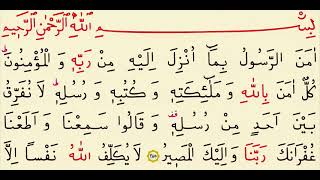 بِسْمِ اللّٰهِ الرَّحْمٰنِ الرَّحِيْمِ
اٰمَنَ الرَّسُوْلُ بِمَاۤ اُنْزِلَ اِلَيْهِ مِنْ رَّبِّهٖ وَ الْمُؤْمِنُوْنَؕ
كُلٌّ اٰمَنَ بِاللّٰهِ وَ مَلٰٓئِكَتِهٖ وَ كُتُبِهٖ وَ رُسُلِهٖؕ لَا نُفَرِّقُ
بَيْنَ اَحَدٍ مِّنْ رُّسُلِهٖؕ وَ قَالُوْا سَمِعْنَا وَ اَطَعْنَا
غُفْرَانَكَ رَبَّنَا وَ اِلَيْكَ الْمَصِيْرُ ٢٨٥ لَا يُكَلِّفُ اللّٰهُ نَفْسًا اِلَّا